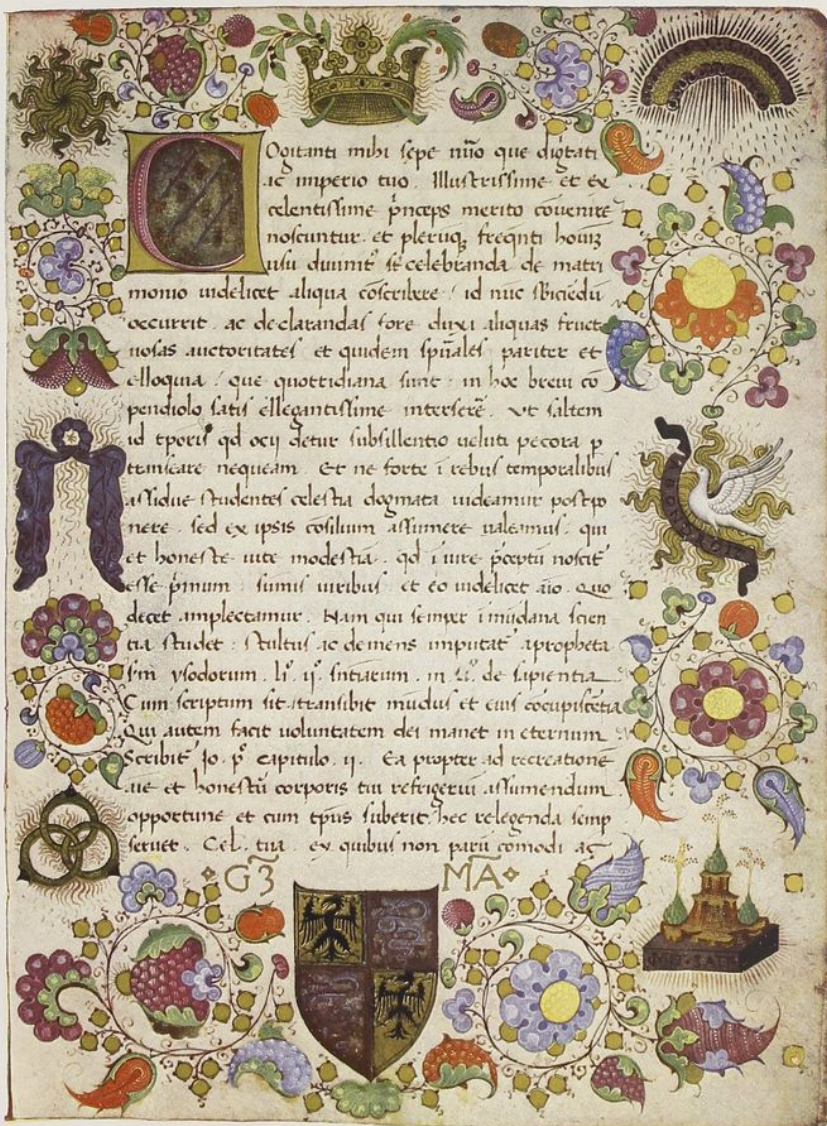 COgitanti mihi sepe nūo que dig̃tati
ac imperio tuo. Illustrissime et ex
celentissime p̃nceps merito cōuenire
noscuntur. et pleruq, freq̃nti houiz
usu diuinit᷒ st̃ celebranda de matri
monio uidelicet aliqua cōscribere / id nūc
occurrit. ac declarandas fore duxi aliquas fruct
uosas auctoritates et quidem sp̃uales pariter et
elloquia / que quottidiana sunt. in hoc breui cō
pendiolo satis ellegantissime interserē. Vt saltem
id tp̄oris qd ocij detur subsillentio ueluti pecora p
transeare nequeam. Et ne forte ī rebus temporalibus
assidue studentes celestia dogmata uideamur postpo
nere. sed ex ipsis cōsilium assumere ualeamus. qui
et honeste uite modestia. qd ī iure p̃ceptū noscit᷒
esse p̃mum summis uiribus et eo uidelicet aīo. Quo
decet amplectamur. Nam qui semper ī mūdana scien
tia studet: stultus ac demens imputat᷒ apropheta
s'm ysodorum. li°. ij°. sñtiarum. in li°. de sapientia
Cum scriptum sit. transibit mūdus et eius cōcupiscētia
Qui autem facit uoluntatem dei manet in eternum
Scribit᷒ Jo. p°. capitulo. ij. Ea propter ad recreationē
aie et honestū corporis tui refrigeriū assumendum
opportune et cum tp̃us suberit. hec relegenda semp
seruet. Cel. tua. ex quibus non parū comodi ac
G3 MA